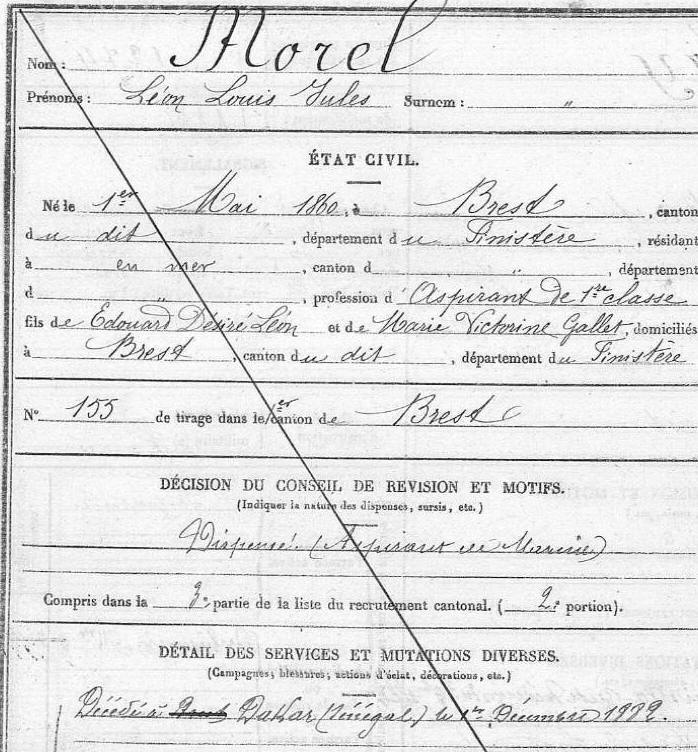 Nom : Morel
Prénoms : Léon Louis Jules Surnom : "
ÉTAT CIVIL.
Né le 1er Mai 1860, à Brest, canton
du dit, département du Finistère, résidant
à en mer, canton d " , département
d " , profession d'Aspirant de 1re classe
fils de Edouard Désiré Léon et de Marie Victorine Gallet, domiciliés
à Brest, canton du dit, département du Finistère
N° 155 de tirage dans le 1er canton de Brest
DÉCISION DU CONSEIL DE REVISION ET MOTIFS.
(Indiquer la nature des dispenses, sursis, etc.)
Dispensé. (Aspirant de Marine)
Compris dans la 3e partie de la liste du recrutement cantonal. (2e portion).
DÉTAIL DES SERVICES ET MUTATIONS DIVERSES.
(Campagnes, blessures, actions d'éclat, décorations, etc.)
Décédé à Dakar (Sénégal) le 1er Décembre 1882.